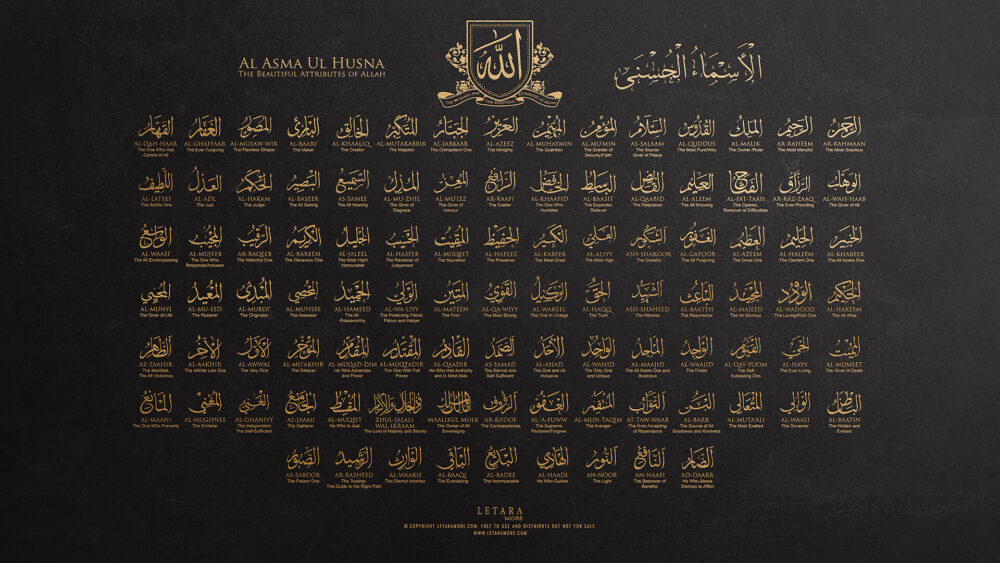 AL ASMA UL HUSNA
THE BEAUTIFUL ATTRIBUTES OF ALLAH
الله
الْأَسْمَاءُ الْحُسْنَى
الرحمن
AR-RAHMAAN
The Most Gracious
الرحيم
AR-RAHEEM
The Most Merciful
الملك
AL-MALIK
The Owner /Ruler
القدوس
AL-QUDDUS
The Most Pure/Holy
السلام
AS-SALAAM
The Source
Giver of Peace
المؤمن
AL-MU'MIN
The Granter of
Security/Faith
المهيمن
AL-MUHAYMIN
The Guardian
العزيز
AL-AZEEZ
The Almighty
الجبار
AL-JABBAAR
The Omnipotent One
المتكبر
AL-MUTAKABBIR
The Majestic
الخالق
AL-KHAALIQ
The Creator
البارئ
AL-BAARI'
The Maker
المصور
AL-MUSAW-WIR
The Flawless Shaper
الغفار
AL-GHAFFAAR
The Ever Forgiving
القهار
AL-QAH-HAAR
The One Who Has
Control of All
الوهاب
AL-WAH-HAAB
The Giver of All
الرزاق
AR-RAZ-ZAAQ
The Ever Providing
الفتاح
AL-FAT-TAAH
The Opener,
Remover of Difficulties
العليم
AL-ALEEM
The All Knowing
القابض
AL-QAABID
The Restrainer
الباسط
AL-BAASIT
The Expander,
Reliever
الخافض
AL-KHAAFID
The One Who
Humbles
الرافع
AR-RAAFI
The Exalter
المعز
AL-MU'IZZ
The Giver of
Honour
المذل
AL-MU-ZHIL
The Giver of
Disgrace
السميع
AS-SAMEE
The All Hearing
البصير
AL-BASEER
The All Seeing
الحكم
AL-HAKAM
The Judge
العدل
AL-ADL
The Just
اللطيف
AL-LATEEF
The Subtle One
الخبير
AL-KHABEER
The All Aware One
الحليم
AL-HALEEM
The Clement One
العظيم
AL-AZEEM
The Great One
الغفور
AL-GAFOOR
The All Forgiving
الشكور
ASH-SHAKOOR
The Grateful
العلي
AL-ALIYY
The Most High
الكبير
AL-KABEER
The Most Great
الحفيظ
AL-HAFEEZ
The Preserver
المقيت
AL-MUQEET
The Nourisher
الحسيب
AL-HASEEB
The Reckoner of
Judgement
الجليل
AL-JALEEL
The Most High/
Honourable
الكريم
AL-KAREEM
The Generous One
الرقيب
AR-RAQEEB
The Watchful One
المجيب
AL-MUJEEB
The One Who
Responds/Answers
الواسع
AL-WAASI'
The All Encompassing
الحكيم
AL-HAKEEM
The All Wise
الودود
AL-WADOOD
The Loving/Kind One
المجيد
AL-MAJEED
The All Glorious
الباعث
AL-BAAITH
The Resurrector
الشهيد
ASH-SHAHEED
The Witness
الحق
AL-HAQQ
The Truth
الوكيل
AL-WAKEEL
The One In Charge
القوي
AL-QA-WIYY
The Most Strong
المتين
AL-MATEEN
The Firm
الولي
AL-WA-LIYY
The Protecting Friend,
Patron and Helper
الحميد
AL-HAMEED
The All
Praiseworthy
المحصي
AL-MUHSEE
The Assessor
المبدئ
AL-MUBDI'
The Originator
المعيد
AL-MU-EED
The Restorer
المحيي
AL-MUHYI
The Giver of Life
المميت
AL-MUMEET
The Giver of Death
الحي
AL-HAYY
The Ever Living
القيوم
AL-QAY-YOOM
The Self
Subsisting One
الواجد
AL-WAAJID
The Finder
الماجد
AL-MAAJID
The All Noble and
Illustrious
الواحد
AL-WAHID
The Only One
and Unique
الأحد
AL-AHAD
The One and All
Inclusive
الصمد
AS-SAMAD
The Eternal and
Self Sufficient
القادر
AL-QAADIR
He Who Has Authority
and Is Most Able
المقتدر
AL-MUQTADIR
The One With Full
Power
المقدم
AL-MUQAD-DIM
He Who Advances
and Power
المؤخر
AL-MU'AKHIR
The Delayer
الأول
AL-AWWAL
The Very First
الآخر
AL-AAKHIR
The Infinite Last One
الظاهر
AZ-ZAAHIR
The Manifest,
The All Victorious
الباطن
AL-BAATIN
The Hidden and
Evident
الوالي
AL-WAALI
The Governer
المتعالي
AL-MUTAALI
The Most Exalted
البر
AL-BARR
The Source of All
Goodness and Kindness
التواب
AT-TAW-WAAB
The Ever Accepting
of Repentance
المنتقم
AL-MUN-TAQIM
The Avenger
العفو
AL-'A-FUWW
The Supreme
Pardoner/Forgiver
الرؤوف
AR-RA'OOF
The Compassionate
مالك الملك
MAALIKUL MULK
The Owner of All
Sovereignty
ذو الجلال والإكرام
ZHUL-JALAL
WAL-IKRAAM
The Lord of Majesty and Bounty
المقسط
AL-MUQSIT
He Who Is Just
الجامع
AL-JAAMI
The Gatherer
الغني
AL-GHANIYY
The Independent
The Self-Sufficient
المغني
AL-MUGHNEE
The Enricher
المانع
AL-MAANI
The One Who Prevents
الضار
AD-DAARR
He Who Allows
Distress to Afflict
النافع
AN-NAAFI
The Bestower of
Benefits
النور
AN-NOOR
The Light
الهادي
AL-HAADI
He Who Guides
البديع
AL-BADEE
The Incomparable
الباقي
AL-BAAQI
The Everlasting
الوارث
AL-WAARIS
The Eternal Inheritor
الرشيد
AR-RASHEED
The Teacher,
The Guide to the Right Path
الصبور
AS-SABOOR
The Patient One
LETARA
MORE
© COPYRIGHT LETARAMORE.COM. FREE TO USE AND DISTRIBUTE BUT NOT FOR SALE.
WWW.LETARAMORE.COM